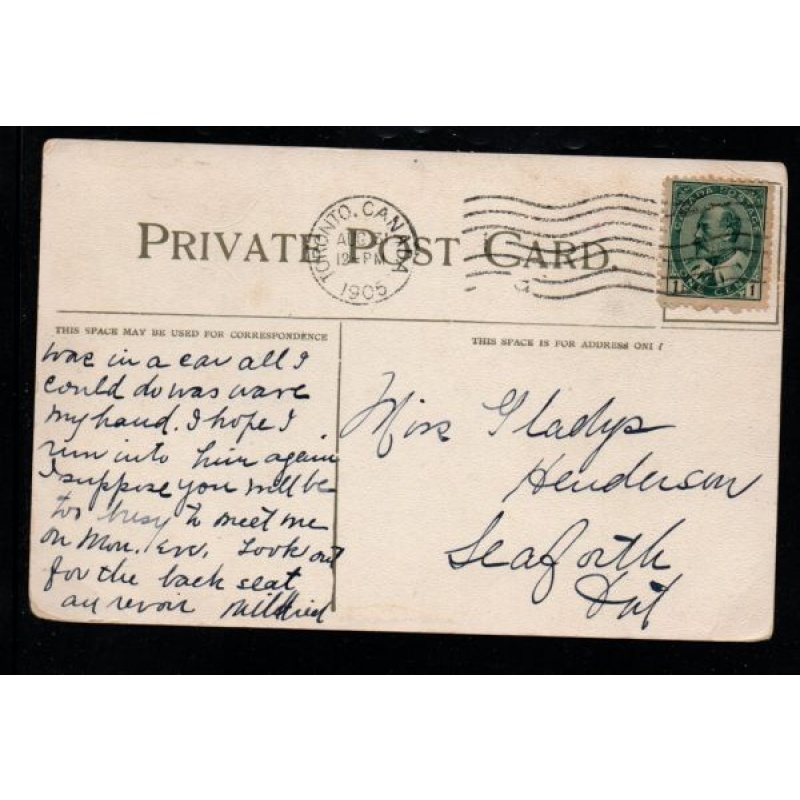 PRIVATE POST CARD.
TORONTO, CANADA
AUG
12-PM
1905
CANADA POSTAGE
1 ONE CENT 1
THIS SPACE MAY BE USED FOR CORRESPONDENCE
THIS SPACE IS FOR ADDRESS ONL
was in a car all I
could do was wave
my hand. I hope I
run into him again
I suppose you will be
too busy to meet me
on Mon. Eve. Look out
for the back seat
au revoir Mildried
Miss Gladys
Henderson
Seaforth
Ont